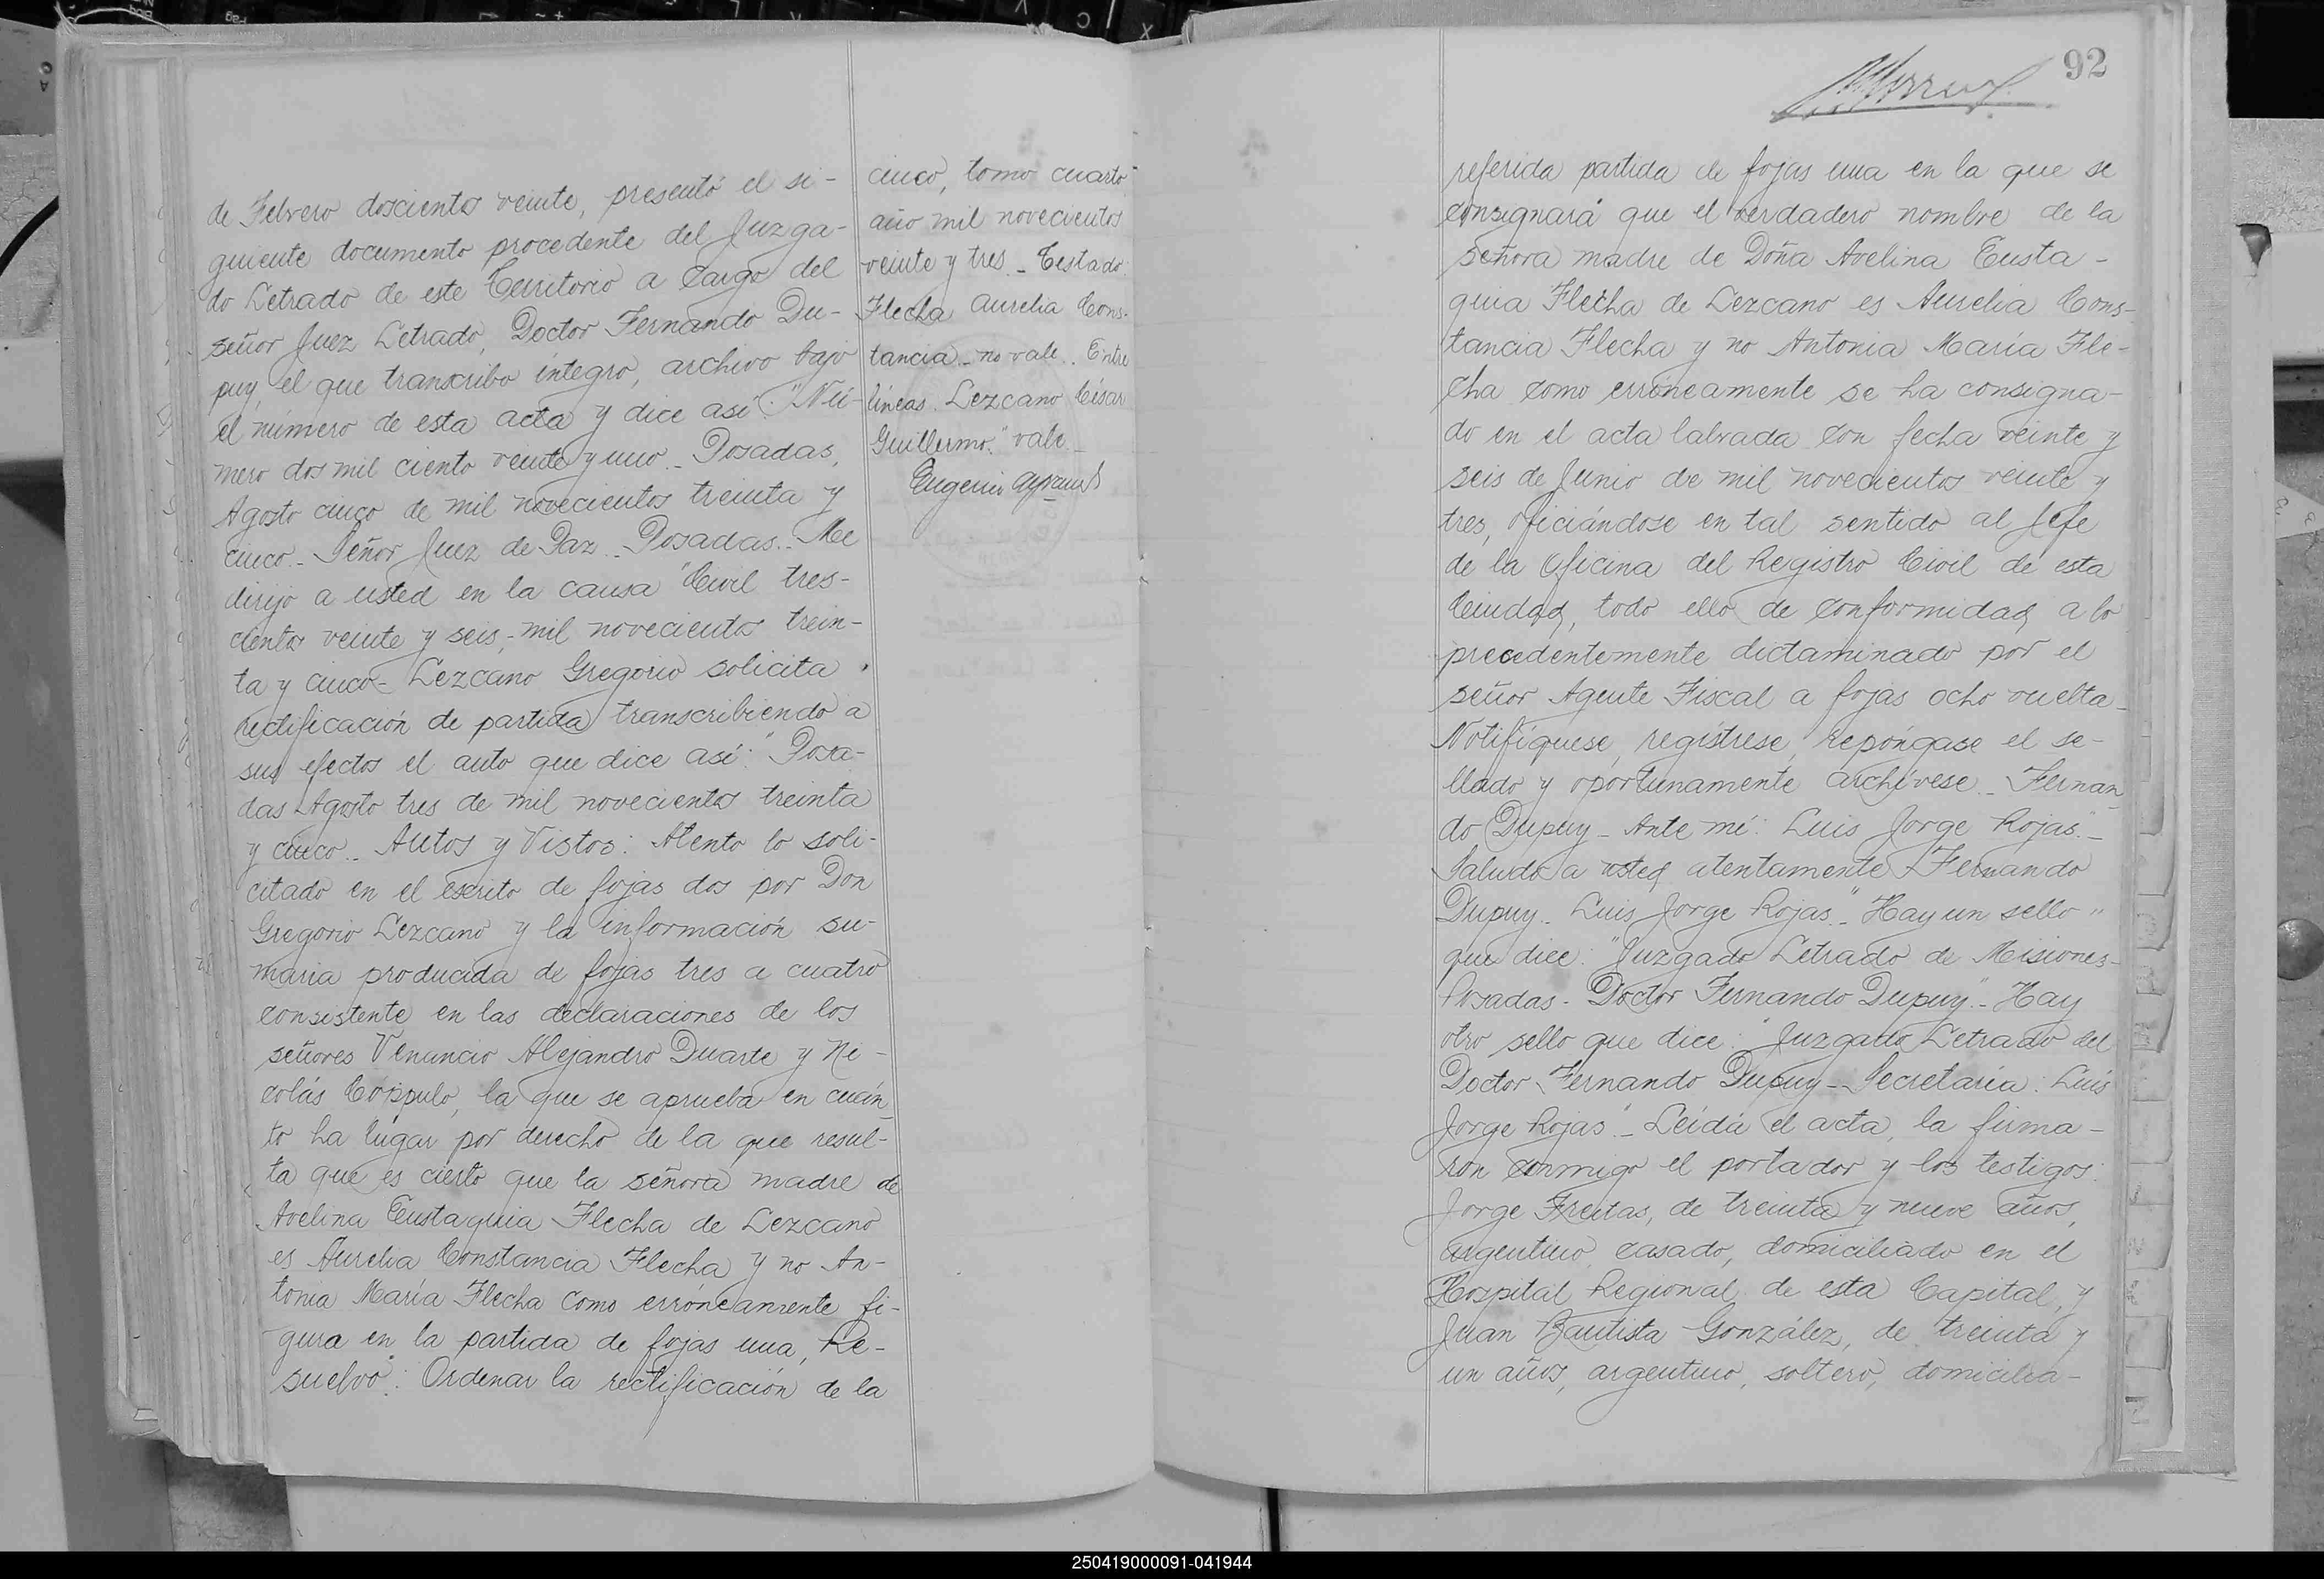 de Febrero doscientos veinte, presentó el si-
guiente documento procedente del Juzga-
do Letrado de este Territorio a cargo del
señor Juez Letrado, Doctor Fernando Du-
puy, el que transcribo íntegro, archivo bajo
el número de esta acta y dice así: "Nú-
mero dos mil ciento veinte y uno.- Posadas,
Agosto cinco de mil novecientos treinta y
cinco.- Señor Juez de Paz.- Posadas.- Me
dirijo a usted en la causa "Civil tres-
cientos veinte y seis,- mil novecientos trein-
ta y cinco- Lezcano Gregorio solicita
rectificación de partida transcribiendo a
sus efectos el auto que dice así: "Posa-
das Agosto tres de mil novecientos treinta
y cinco.- Autos y Vistos: Atento lo soli-
citado en el escrito de fojas dos por Don
Gregorio Lezcano y la información su-
maria producida de fojas tres a cuatro
consistente en las declaraciones de los
señores Venancio Alejandro Duarte y Ni-
colás Cóppulo, la que se aprueba en cuán
to ha lugar por derecho de la que resul-
ta que es cierto que la señora madre de
Avelina Eustaquia Flecha de Lezcano
es Aurelia Constancia Flecha y no An-
tonia María Flecha como erróneamente fi-
gura en la partida de fojas una, Re-
suelvo: Ordenar la rectificación de la
cinco, tomo cuarto-
año mil novecientos
veinte y tres - Testado:
Flecha Aurelia Cons-
tancia - no vale.. Entre
líneas. Lezcano César
Guillermo." vale.-
Eugenio
92
referida partida de fojas una en la que se
consignará que el verdadero nombre de la
señora madre de Doña Avelina Eusta-
quia Flecha de Lezcano es Aurelia Cons-
tancia Flecha y no Antonia María Fle-
cha como erróneamente se ha consigna-
do en el acta labrada con fecha veinte y
seis de Junio de mil novecientos veinte y
tres, oficiándose en tal sentido al Jefe
de la Oficina del Registro Civil de esta
Ciudad, todo ello de conformidad a lo
precedentemente dictaminado por el
señor Agente Fiscal a fojas ocho vuelta-
Notifíquese, regístrese, repóngase el se-
llado y oportunamente archívese.- Fernan
do Dupuy - Ante mí: Luis Jorge Rojas."-
Saludo a usted atentamente Fernando
Dupuy.- Luis Jorge Rojas."- Hay un sello "
que dice: "Juzgado Letrado de Misiones-
Posadas- Doctor Fernando Dupuy".- Hay
otro sello que dice: "Juzgado Letrado del
Doctor Fernando Dupuy- Secretaria: Luis
Jorge Rojas".- Leída el acta, la firma-
ron conmigo el portador y los testigos:
Jorge Freitas, de treinta y nueve años,
argentino, casado, domiciliado en el
Hospital Regional de esta Capital, y
Juan Bautista González, de treinta y
un años, argentino, soltero, domicilia-
250419000091-041944